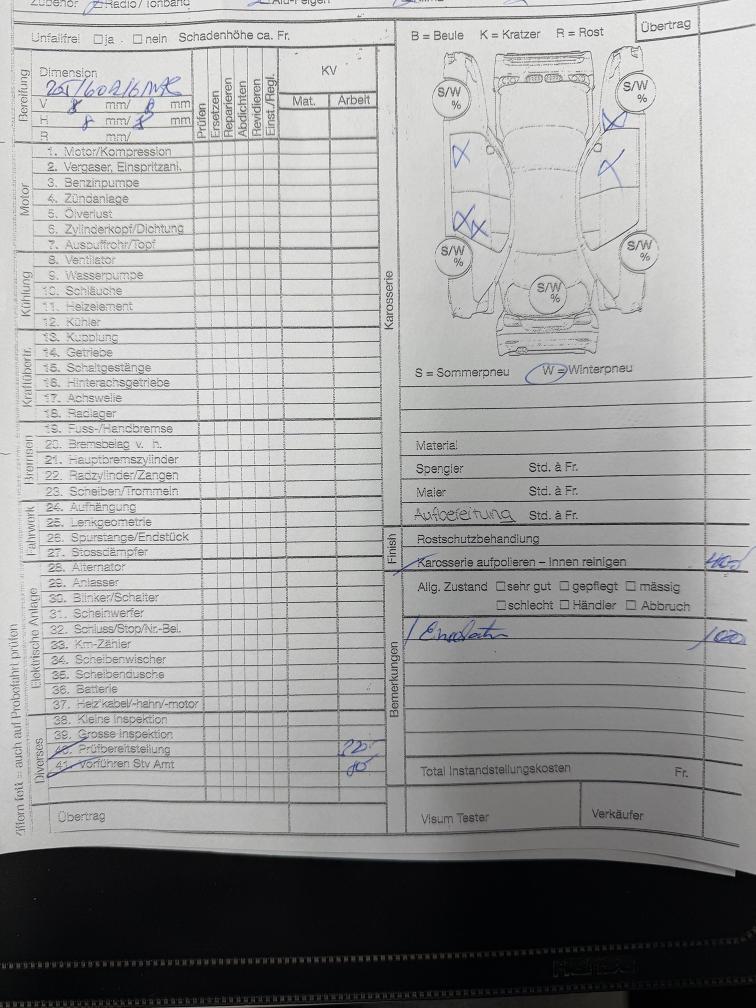 Zubehör Radio/Tonband Alu-Felgen
Unfallfrei ja nein Schadenhöhe ca. Fr.
B = Beule K = Kratzer R = Rost
Übertrag
Bereifung
Dimension
V 8 mm/ 8 mm
H 8 mm/ 8 mm
R mm/
Prüfen
Ersetzen
Reparieren
Abdichten
Revidieren
Einst./Regl.
KV
Mat. Arbeit
Motor
1. Motor/Kompression
2. Vergaser, Einspritzanl.
3. Benzinpumpe
4. Zündanlage
5. Ölverlust
6. Zylinderkopf/Dichtung
7. Auspuffrohr/Topf
Kühlung
8. Ventilator
9. Wasserpumpe
10. Schläuche
11. Heizelement
12. Kühler
Kraftübertr.
13. Kupplung
14. Getriebe
15. Schaltgestänge
16. Hinterachsgetriebe
17. Achswelle
18. Radlager
Bremsen
19. Fuss-/Handbremse
20. Bremsbelag v. h.
21. Hauptbremszylinder
22. Radzylinder/Zangen
23. Scheiben/Trommeln
Fahrwerk
24. Aufhängung
25. Lenkgeometrie
26. Spurstange/Endstück
27. Stossdämpfer
Elektrische Anlage
28. Alternator
29. Anlasser
30. Blinker/Schalter
31. Scheinwerfer
32. Schluss/Stop/Nr.-Bel.
33. Km-Zähler
34. Scheibenwischer
35. Scheibendusche
36. Batterie
37. Heiz'kabel/-hahn/-motor
Diverses
38. Kleine Inspektion
39. Grosse Inspektion
40. Prüfbereitstellung 220.-
41. Vorführen Stv Amt 80.-
Übertrag
Ziffern fett = auch auf Probefahrt prüfen
Karosserie
S/W %
S/W %
S/W %
S/W %
S/W %
S = Sommerpneu W = Winterpneu
Material
Spengler Std. à Fr.
Maler Std. à Fr.
Aufbereitung Std. à Fr.
Finish
Rostschutzbehandlung
Karosserie aufpolieren – Innen reinigen
Bemerkungen
Allg. Zustand sehr gut gepflegt mässig
schlecht Händler Abbruch
Total Instandstellungskosten Fr.
Visum Tester Verkäufer